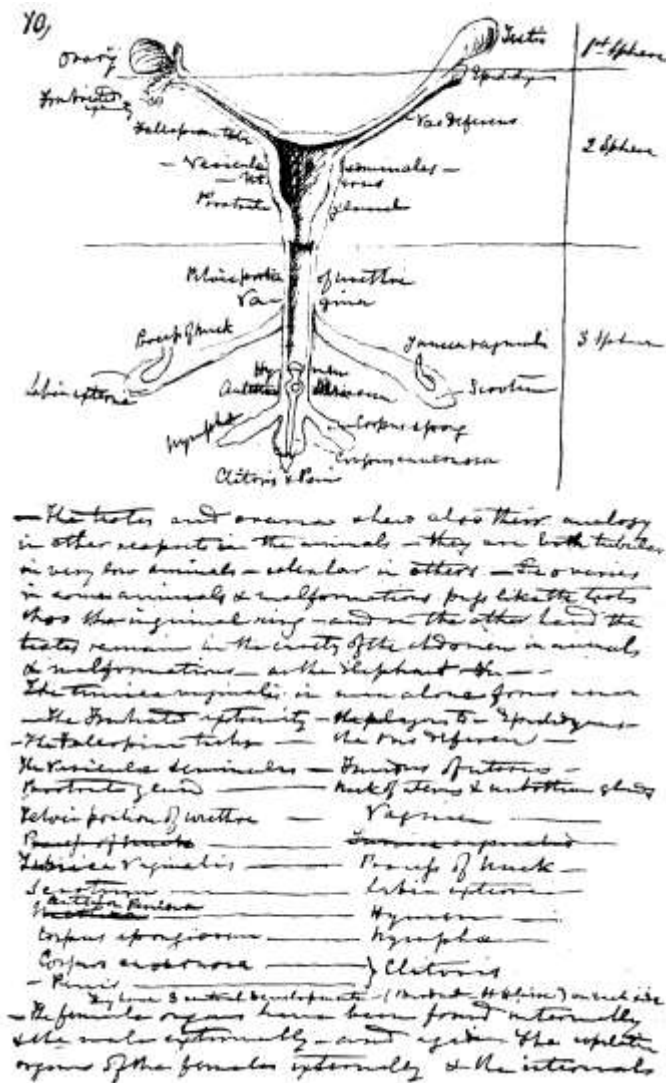 70,
Ovary
Testis
1st Sphere
Fimbriated
Epididymis
Fallopian tube
Vas deferens
Vesiculæ
Seminales
2 Sphere
Ut
erus
Prostate
gland
Pelvic portion
of urethra
Va
gina
Process of Nuck
Tunica vaginalis
3 Sphere
Labia externa
Hy
men
Scrotum
Nymphæ
Corpus spong
Corpus cavernosa
Clitoris & Penis
— The testes and ovaries shew also their analogy
in other respects in the animals — they are both tubular
in very low animals — in others — The ovaries
in some animals & malformations pass like the testes
thro the inguinal ring — and on the other hand the
testes remain in the cavity of the abdomen in animals
& malformations — as the Elephant &c —
The tunica vaginalis in man alone forms
— The Fimbriated extremity — Epididymis —
— The Fallopian tube — the vas deferens —
The Vesiculæ Seminales — Fundus of uterus —
Prostate gland — Neck of uterus & glands
Pelvic portion of urethra — Vagina —
Process of Nuck — Tunica vaginalis —
Tunica Vaginalis — Process of Nuck —
Scrotum — Labia externa —
Hymen —
Corpus spongiosum — Nymphæ —
Corpus cavernosa — } Clitoris
— Penis
— The female organs have been found internally
& the male externally — and again the
organs of the females externally & the internals